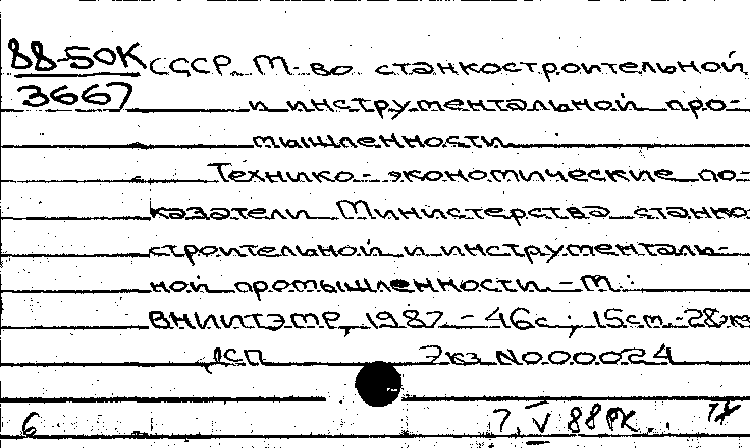 88-50К СССР. М-во станкостроительной
3667 и инструментальной про-
мышленности.
Технико-экономические по-
казатели Министерства станко
строительной и инструменталь-
ной промышленности. - М.:
ВНИИТЭМР, 1987. - 46с; 15см. - 28экз
ДСП Экз N000024
6 7. V 88РК.